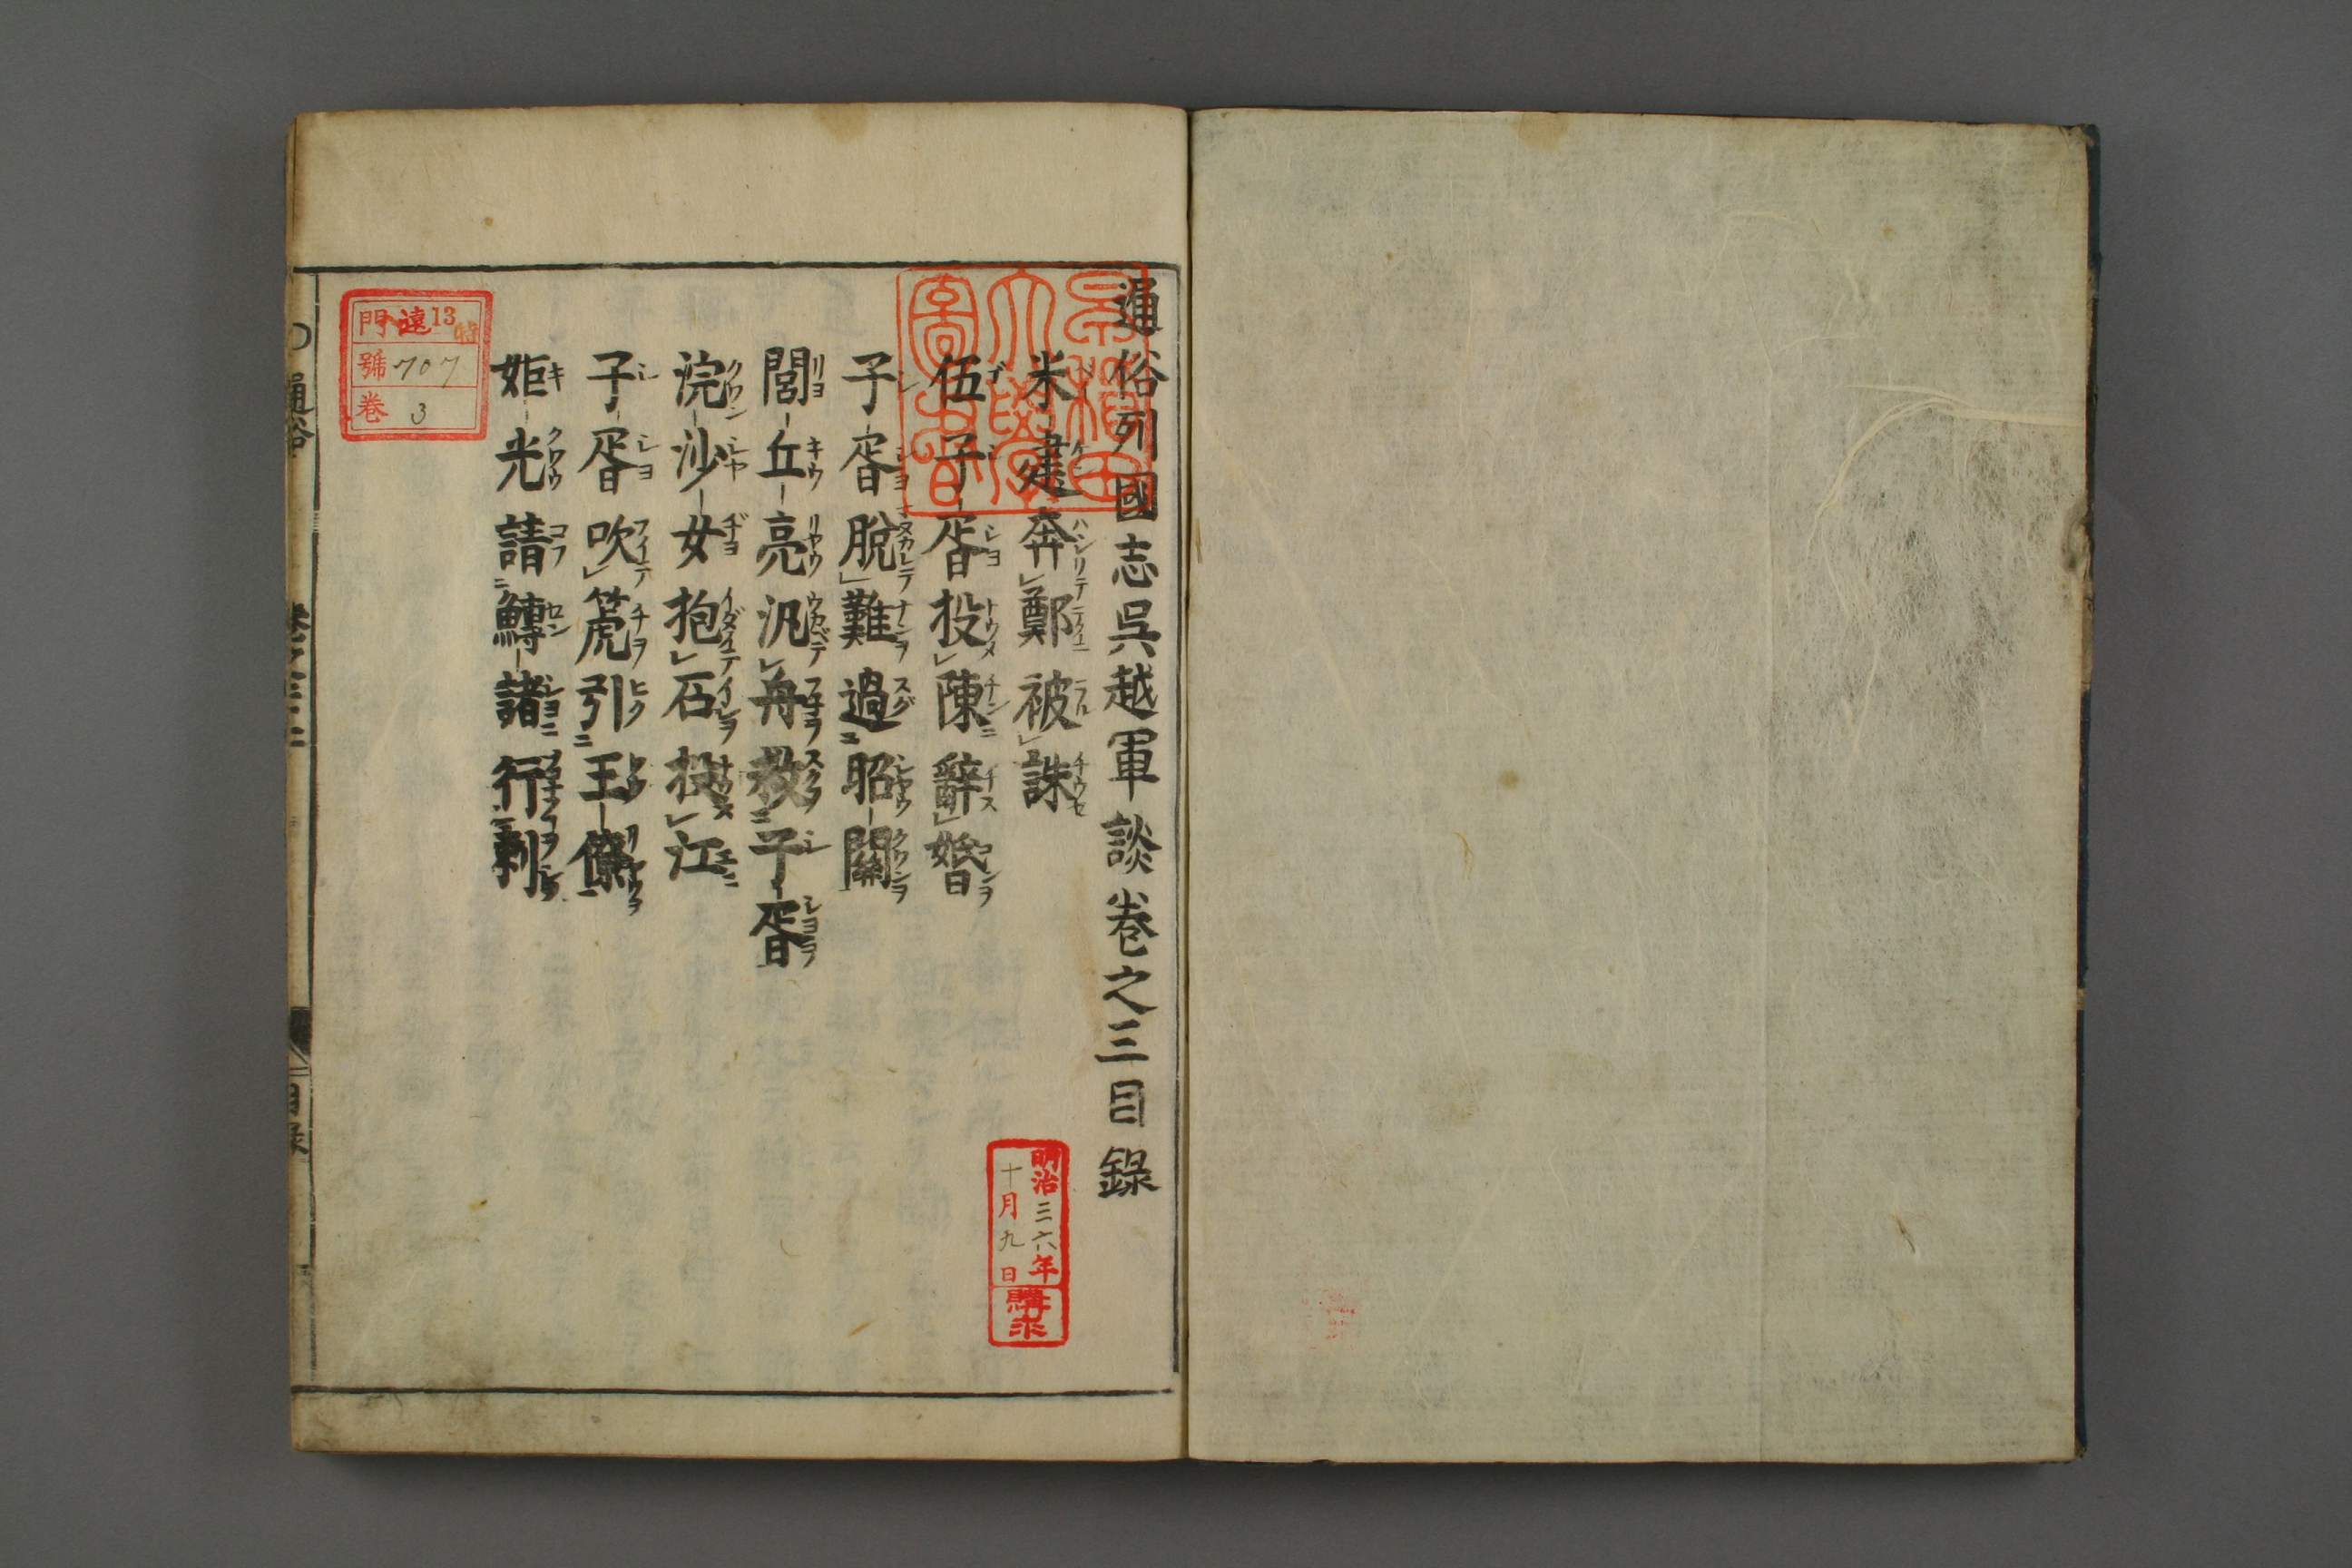 通俗列國志呉越軍談卷之三目録
米建奔鄭被誅
伍子胥投陳辭婚
子胥脱難過昭關
閭丘亮汎舟救子胥
浣沙女抱石投江
子胥吹箎引王僚
姫光請鱄諸行刺
早稲田大學圖書
門 遠13 特
號 707
卷 3
明治三六年
十月九日
購求
通俗
卷之三
目録